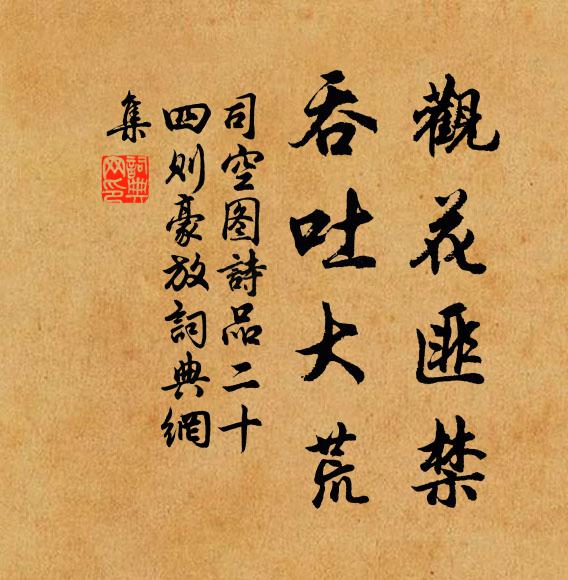 觀花匪禁
吞吐大荒
司空图詩品二十
四则豪放詞典網
集
詞典
网印